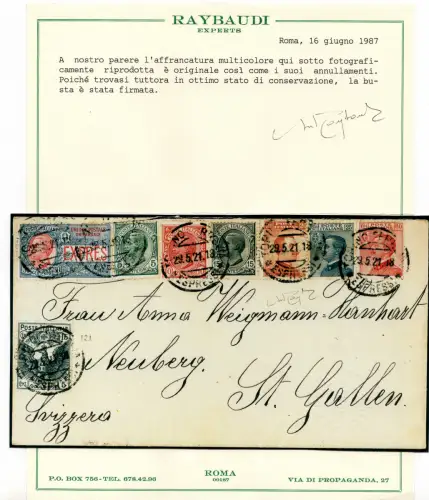 RAYBAUDI
EXPERTS
Roma, 16 giugno 1987
A nostro parere l'affrancatura multicolore qui sotto fotografi-
camente riprodotta è originale così come i suoi annullamenti.
Poiché trovasi tuttora in ottimo stato di conservazione, la bu-
sta è stata firmata.
EXPRES
29.5.21.18
Frau Anna Weigmann-Hanhart
Neuberg.
St. Gallen.
Svizzera
P.O. BOX 756 - TEL. 678.42.96
ROMA
00187
VIA DI PROPAGANDA, 27